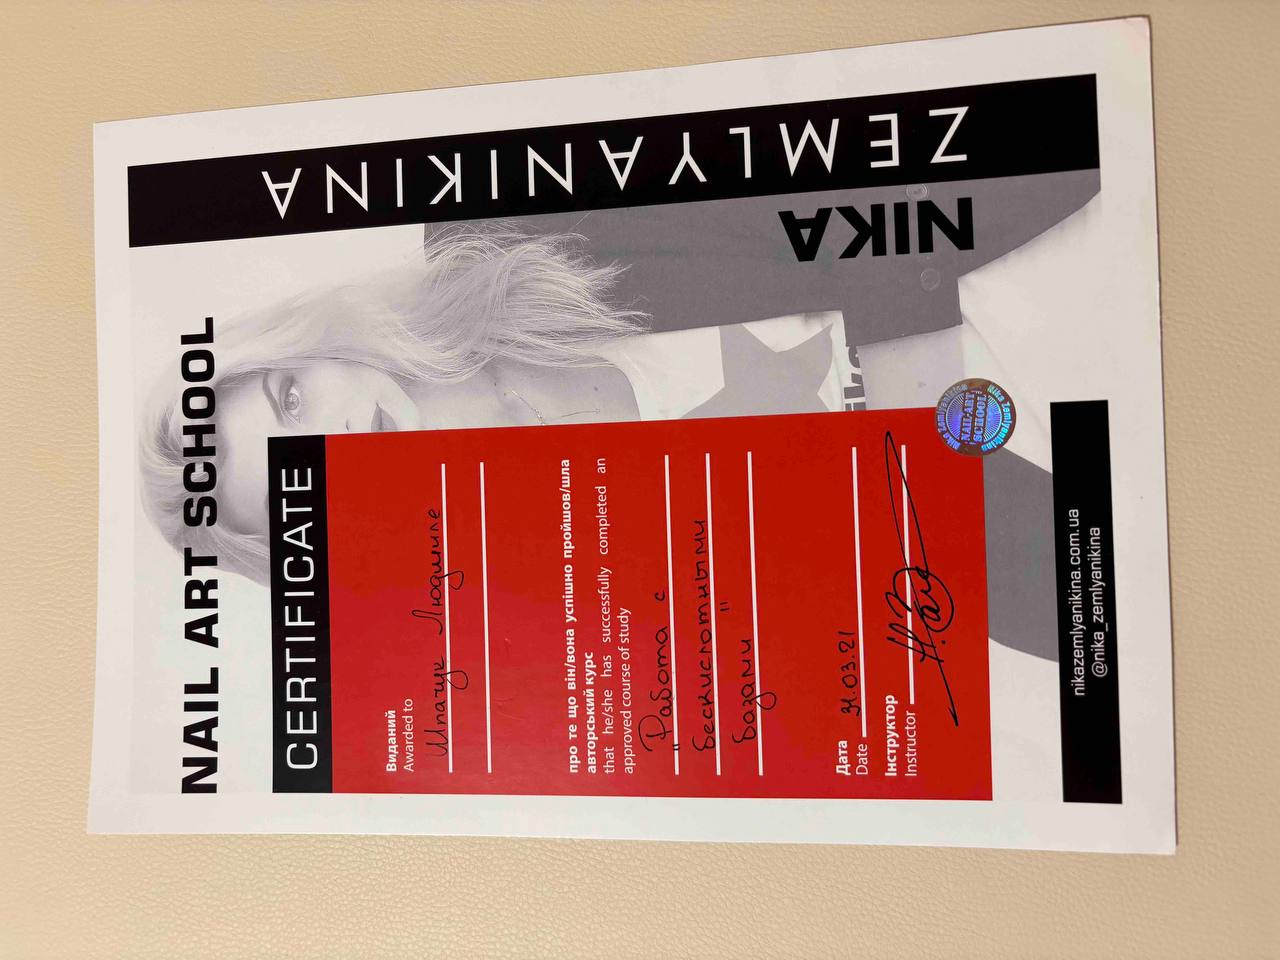 NAIL ART SCHOOL
CERTIFICATE
Виданий
Awarded to
Шпачук Людмиле
про те що він/вона успішно пройшов/шла
авторський курс
that he/she has successfully completed an
approved course of study
"Работа с
бескислотными
базами"
Дата
Date 31.03.21
Інструктор
Instructor
Nika Zemlyanikina
NAIL-ART
SCHOOL
Nika Zemlyanikina
nikazemlyanikina.com.ua
@nika_zemlyanikina
NIKA
ZEMLYANIKINA